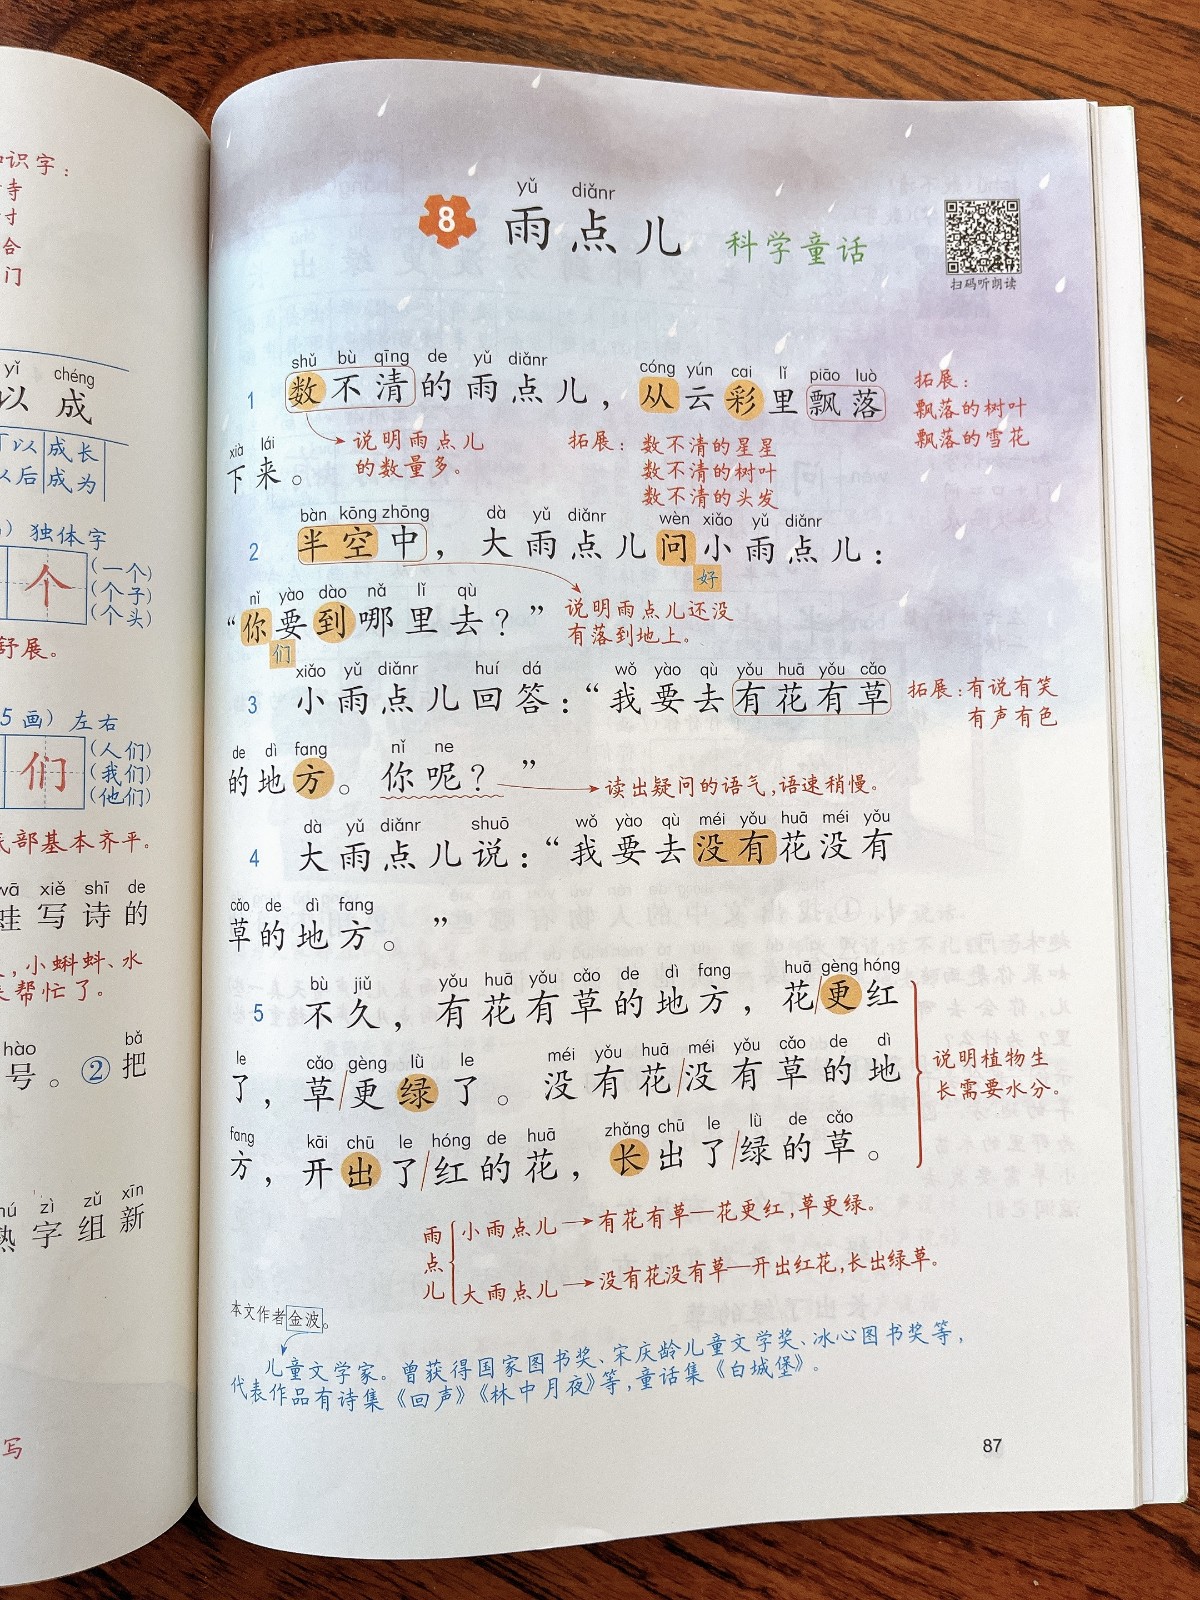 识字：
寺
寸
合
门
yǐ chéng
以 成
以 成长
以后 成为
独体字
个
（一个）
（个子）
（个头）
舒展。
5画） 左右
们
（人们）
（我们）
（他们）
底部基本齐平。
wā xiě shī de
蛙写诗的
，小蝌蚪、水
帮忙了。
hào bǎ
号。②把
zì zǔ xīn
熟字组新
写
yǔ diǎnr
8 雨点儿 科学童话
扫码听朗读
shǔ bù qīng de yǔ diǎnr cóng yún cai lǐ piāo luò
1 数不清的雨点儿，从云彩里飘落
拓展：
飘落的树叶
飘落的雪花
xià lái
下来。
说明雨点儿
的数量多。
拓展：数不清的星星
数不清的树叶
数不清的头发
bàn kōng zhōng dà yǔ diǎnr wèn xiǎo yǔ diǎnr
2 半空中，大雨点儿问小雨点儿：
好
nǐ yào dào nǎ lǐ qù
“你要到哪里去？”
们
说明雨点儿还没
有落到地上。
xiǎo yǔ diǎnr huí dá wǒ yào qù yǒu huā yǒu cǎo
3 小雨点儿回答：“我要去有花有草
拓展：有说有笑
有声有色
de dì fang nǐ ne
的地方。你呢？”
读出疑问的语气，语速稍慢。
dà yǔ diǎnr shuō wǒ yào qù méi yǒu huā méi yǒu
4 大雨点儿说：“我要去没有花没有
cǎo de dì fang
草的地方。”
bù jiǔ yǒu huā yǒu cǎo de dì fang huā gèng hóng
5 不久，有花有草的地方，花/更红
le cǎo gèng lǜ le méi yǒu huā méi yǒu cǎo de dì
了，草/更绿了。没有花/没有草的地
fang kāi chū le hóng de huā zhǎng chū le lǜ de cǎo
方，开出了/红的花，长出了/绿的草。
说明植物生
长需要水分。
雨点儿
小雨点儿→有花有草—花更红，草更绿。
大雨点儿→没有花没有草—开出红花，长出绿草。
本文作者金波。
儿童文学家。曾获得国家图书奖、宋庆龄儿童文学奖、冰心图书奖等，
代表作品有诗集《回声》《林中月夜》等，童话集《白城堡》。
87